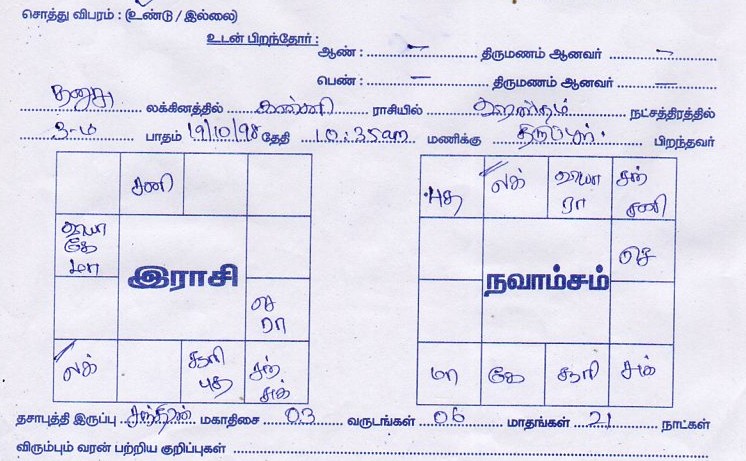 சொத்து விபரம் : (உண்டு / இல்லை)
உடன் பிறந்தோர் :
ஆண் : – திருமணம் ஆனவர் –
பெண் : – திருமணம் ஆனவர் –
தனுசு லக்கினத்தில் கன்னி ராசியில் ஹஸ்தம் நட்சத்திரத்தில்
3-ம் பாதம் 19/10/98 தேதி 10:35am மணிக்கு திருப்பூர். பிறந்தவர்
சனி
புத லக் வியா ரா சந் சனி
வியா கே மா
செ
இராசி
நவாம்சம்
செ ரா
லக் சூரி புத சந் சுக்
மா கே சூரி சுக்
தசாபுத்தி இருப்பு சந்திரன் மகாதிசை 03 வருடங்கள் 06 மாதங்கள் 21 நாட்கள்
விரும்பும் வரன் பற்றிய குறிப்புகள்